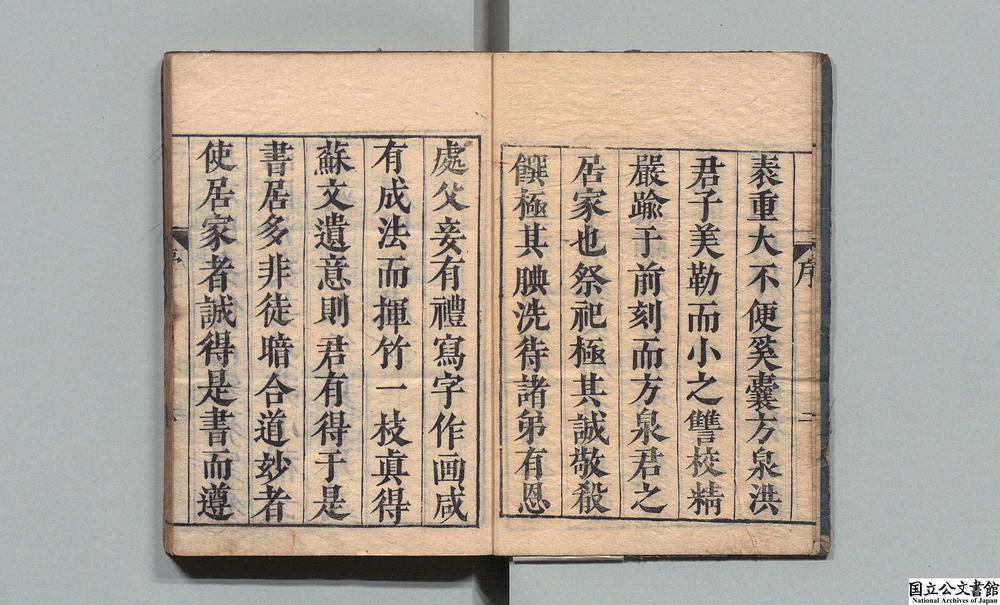 序
二
表重大不便奚囊方泉洪
君子美勒而小之讐校精
嚴踰于前刻而方泉君之
居家也祭祀極其誠敬殽
饌極其腆洗待諸弟有恩
處父妾有禮寫字作画咸
有成法而揮竹一枝真得
蘇文遺意則君有得于是
書居多非徒暗合道妙者
使居家者誠得是書而遵
国立公文書館
National Archives of Japan